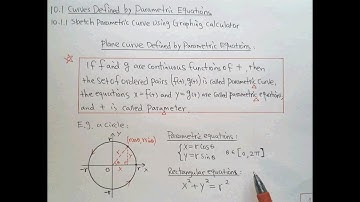 10.1 Curves Defined by Parametric Equations
10.1.1 Sketch Parametric Curve Using Graphing Calculator
Plane Curve Defined by Parametric Equations:
If f and g are continuous functions of t, then
the set of ordered Pairs (f(t), g(t)) is called Parametric Curve,
the equations x = f(t) and y = g(t) are called parametric equations,
and t is called Parameter.
E.g. a circle:
Parametric equations:
{ x = r cosθ
y = r sinθ θ ∈ [0, 2π]
Rectangular equations:
x² + y² = r²
y
r
(r cosθ, r sinθ)
r
y
θ
-r
0
x
r
x
-r